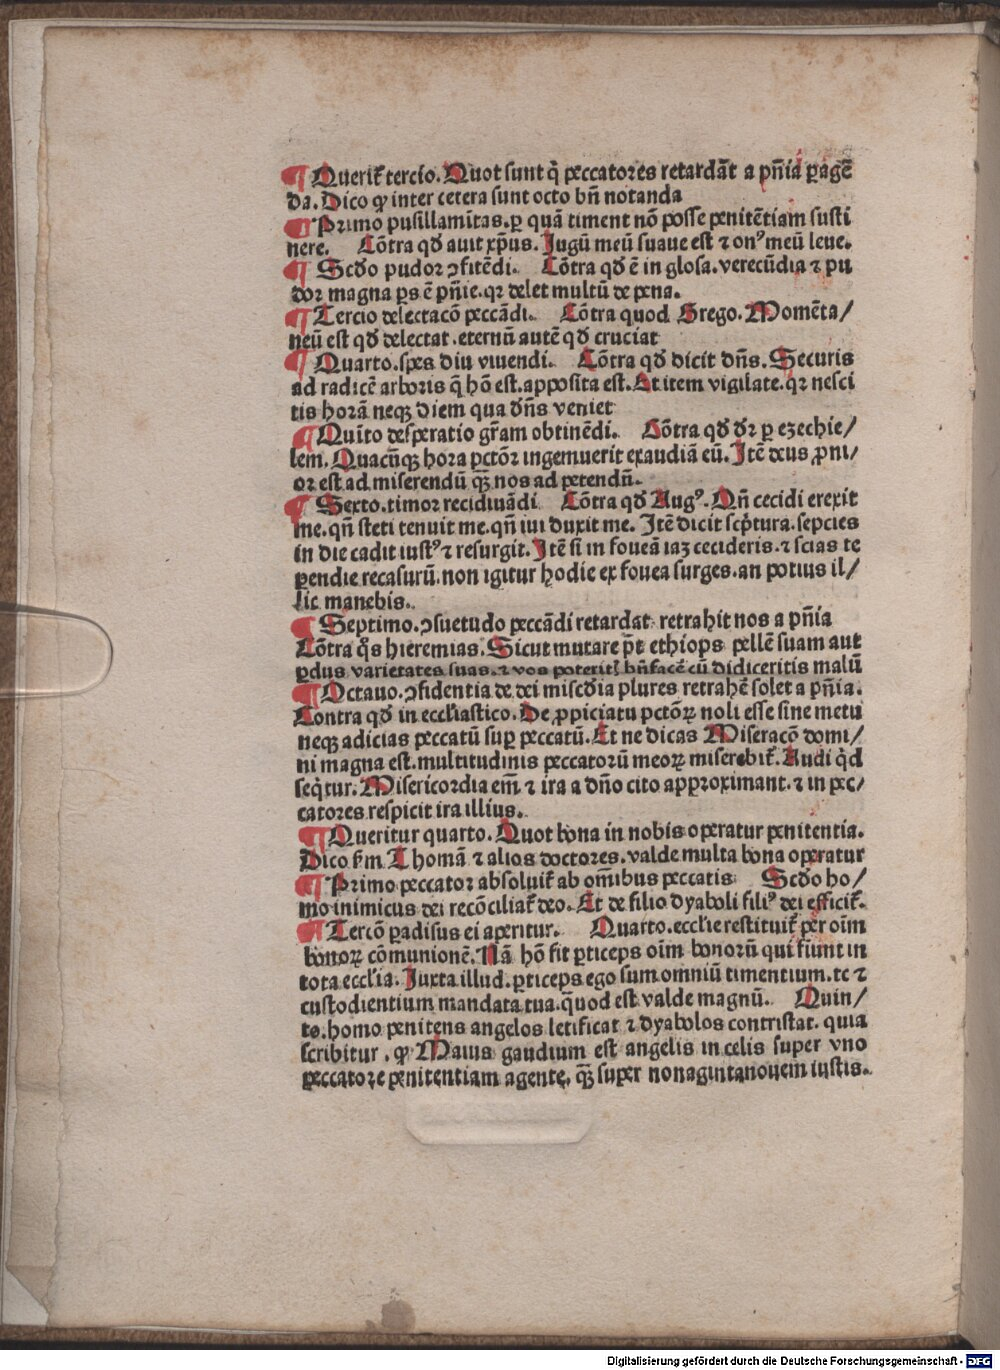 ¶ Querit̄ tercio. Quot sunt q̇ peccatores retardāt a pn̄ia ꝑagē
da. Dico ꝙ inter cetera sunt octo bn̄ notanda
¶ Primo pusillamītas. ꝑ quā timent nō posse penitētiam susti
nere. Cōtra qd̄ avit xp̄us. Jugū meū suaue est ⁊ onꝰ meū leue.
¶ Scd̄o pudor ꝯfitēdi. Cōtra qd̄ ē in glosa. verecūdia ⁊ pu
dor magna ꝑs ē pn̄ie. qꝛ delet multū de pena.
¶ Tercio delectacō peccādi. Cōtra quod Grego. Momēta/
neū est qd̄ delectat. eternū autē qd̄ cruciat
¶ Quarto. spes diu viuendi. Cōtra qd̄ dicit dn̄s. Securis
ad radicē arboris q̄ hō est. apposita est. Et item vigilate. qꝛ nesci
tis horā neqꝫ diem qua dn̄s veniet
¶ Quīto desperatio gr̄am obtinēdi. Cōtra qd̄ dr̄ ꝑ ezechie/
lem. Quacūqꝫ hora pctōꝛ ingemuerit exaudiā eū. Jtē deus ꝓni/
or est ad miserendū qꝫ̄ nos ad petendū.
¶ Sexto. timor recidiuādi Cōtra qd̄ Augꝰ. Qn̄ cecidi erexit
me. qn̄ steti tenuit me. qn̄ iui duxit me. Jtē dicit scp̄tura. sepcies
in die cadit iustꝰ ⁊ resurgit. Jtē si in foueā iaꝫ cecideris. ⁊ scias te
ꝑendie recasurū. non igitur hodie ex fouea surges. an potius il/
lic manebis.
¶ Septimo. ꝯsuetudo peccādi retardat retrahit nos a pn̄ia
Cōtra qd̄s hieremias. Sicut mutare pt̄ ethiops pellē suam aut
ꝑdus varietates suas. ⁊ vos poterit̄ bn̄facē cū didiceritis malū
¶ Octauo. ꝯfidentia de dei misc̄dia plures retrahē solet a pn̄ia.
Contra qd̄ in eccl̄iastico. De ꝓpiciatu pctōꝝ noli esse sine metu
neqꝫ adicias peccatū suꝑ peccatū. Et ne dicas Miseracō domi/
ni magna est. multitudinis peccatorū meoꝝ miserebit̄. Audi qi̇d
seq̇tur. Misericordia em̄ ⁊ ira a dn̄o cito approximant. ⁊ in pec/
catores respicit ira illius.
¶ Queritur quarto. Quot bona in nobis operatur penitentia.
Dico ẜm Thomā ⁊ alios doctores. valde multa bona operatur
¶ Primo peccator absoluit̄ ab om̄ibus peccatis Scd̄o ho/
mo inimicus dei recōciliat̄ deo. Et de filio dyaboli filiꝰ dei efficit̄.
¶ Tercō ꝑadisus ei aperitur. Quarto. eccl̄ie restituit̄ per oīm
bonoꝝ cōmunionē. Nā hō fit ꝑticeps oīm bonorū qui fiunt in
tota eccl̄ia. Juxta illud. ꝑticeps ego sum omniū timentium. te ⁊
custodientium mandata tua. quod est valde magnū. Quin/
to. homo penitens angelos letificat ⁊ dyabolos contristat. quia
scribitur. ꝙ Maius gaudium est angelis in celis super vno
peccatore penitentiam agente. qꝫ̄ super nonagintanouem iustis.
Digitalisierung gefördert durch die Deutsche Forschungsgemeinschaft - DFG